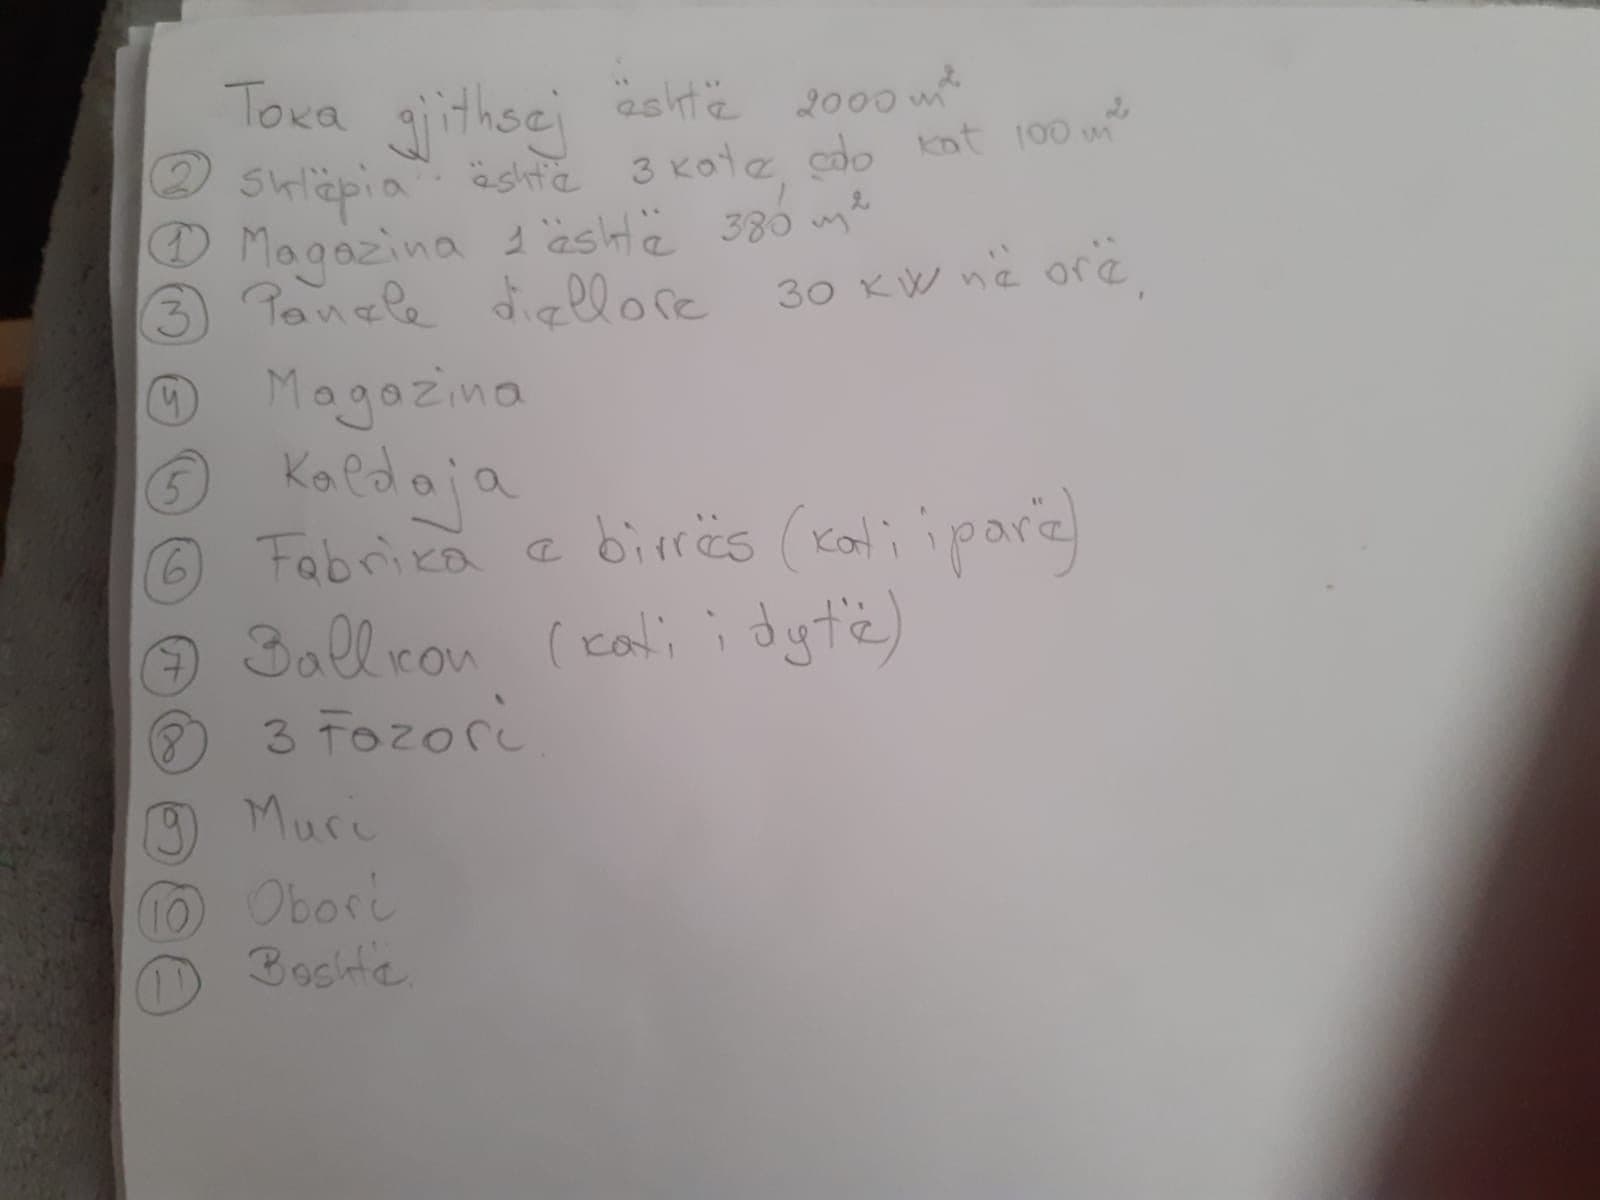 Toka gjithsej është 2000 m²
② Shtëpia është 3 kate, çdo kat 100 m²
① Magazina 1 është 380 m²
③ Panele diellore 30 KW në orë,
④ Magazina
⑤ Kaldaja
⑥ Fabrika e birrës (kati i parë)
⑦ Ballkon (kati i dytë)
⑧ 3 Fazori.
⑨ Muri
⑩ Obori
⑪ Boshtë.